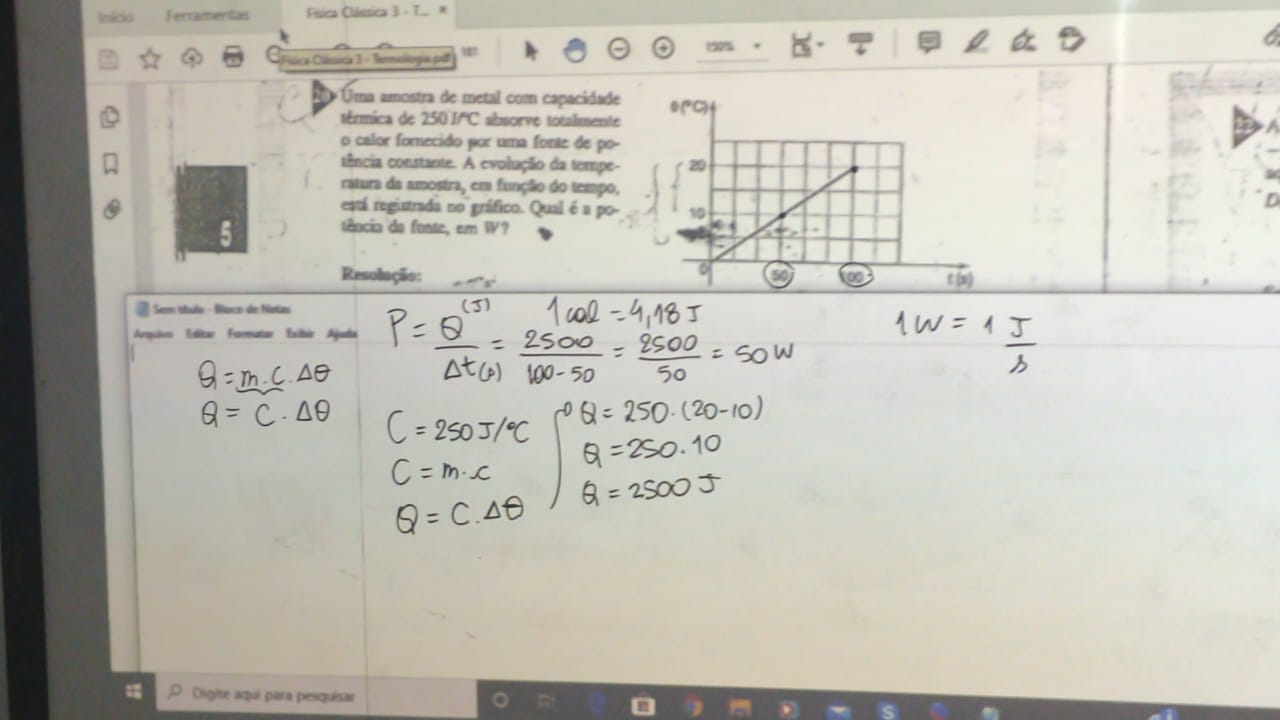 Início Ferramentas Física Clássica 3 - T... ×
150%
Física Clássica 3 - Termologia.pdf
Uma amostra de metal com capacidade
térmica de 250 J/°C absorve totalmente
o calor fornecido por uma fonte de po-
tência constante. A evolução da tempe-
ratura da amostra, em função do tempo,
está registrada no gráfico. Qual é a po-
tência da fonte, em W?
Resolução:
5
θ (°C)
20
10
0 50 100 t (s)
Sem título - Bloco de Notas
Arquivo Editar Formatar Exibir Ajuda
P = Q (J) / Δt (s) = 2500 / 100-50 = 2500 / 50 = 50 W
1 cal = 4,18 J
1 W = 1 J / s
Q = m.c.Δθ
Q = C.Δθ
C = 250 J/°C
C = m.c
Q = C.Δθ
Q = 250.(20-10)
Q = 250.10
Q = 2500 J
Digite aqui para pesquisar